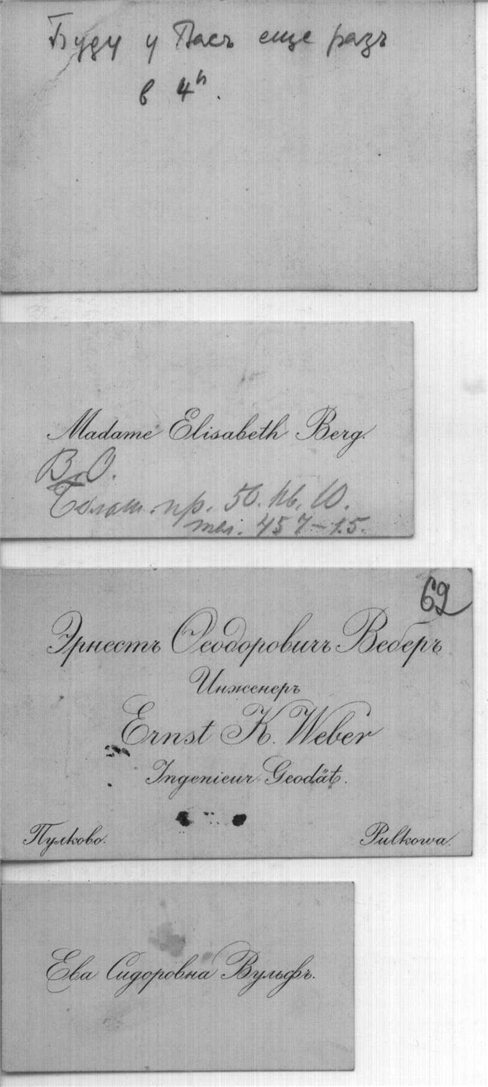 Буду у Васъ еще разъ
в 4ʰ.
Madame Elisabeth Berg.
В.О.
пр. 56. кв. 10.
тел. 457–15.
62
Эрнестъ Ѳеодоровичъ Веберъ
Инженеръ
Ernst K. Weber
Ingenieur Geodät.
Пулково.
Pulkowa.
Ева Сидоровна Вульфъ.